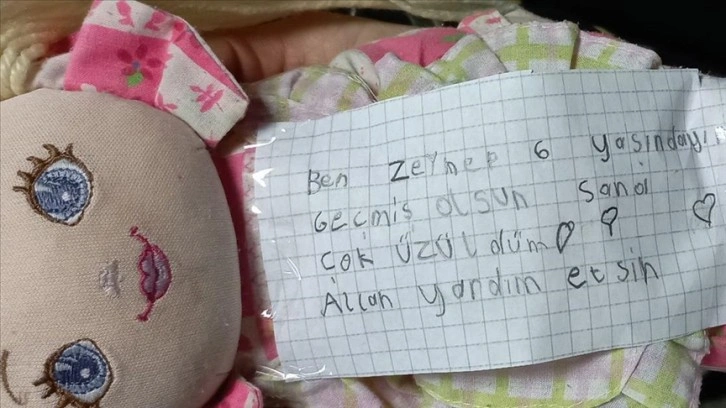 Ben Zeynep 6 yaşındayı
Geçmiş olsun sana
çok üzüldüm
Allah yardım etsin